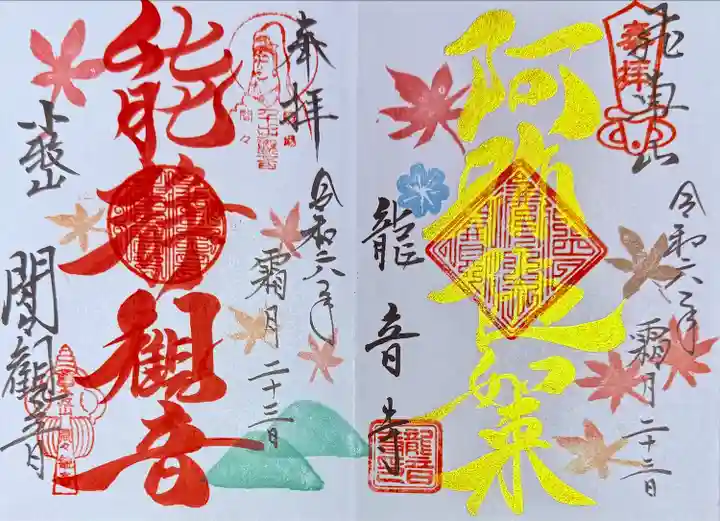 飛車山
奉拝
令和六年
霜月二十三日
阿弥陀如来
龍音寺
奉拝
令和六年
霜月二十三日
観音
小牧山
間々観音